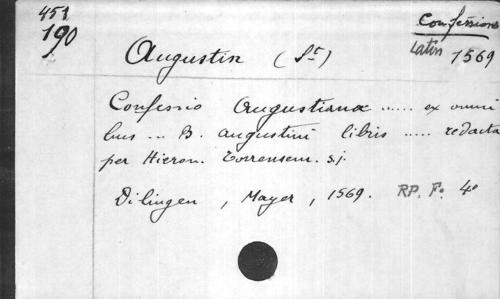 451
190
Confessions
Augustin (St)
Latin 1569
Confessio Augustiana ..... ex omni
bus ... B. augustini libris ..... redacta
per Hieron. Torrensem. s.j.
Dilingen, Mayer, 1569. RP. F. 4º